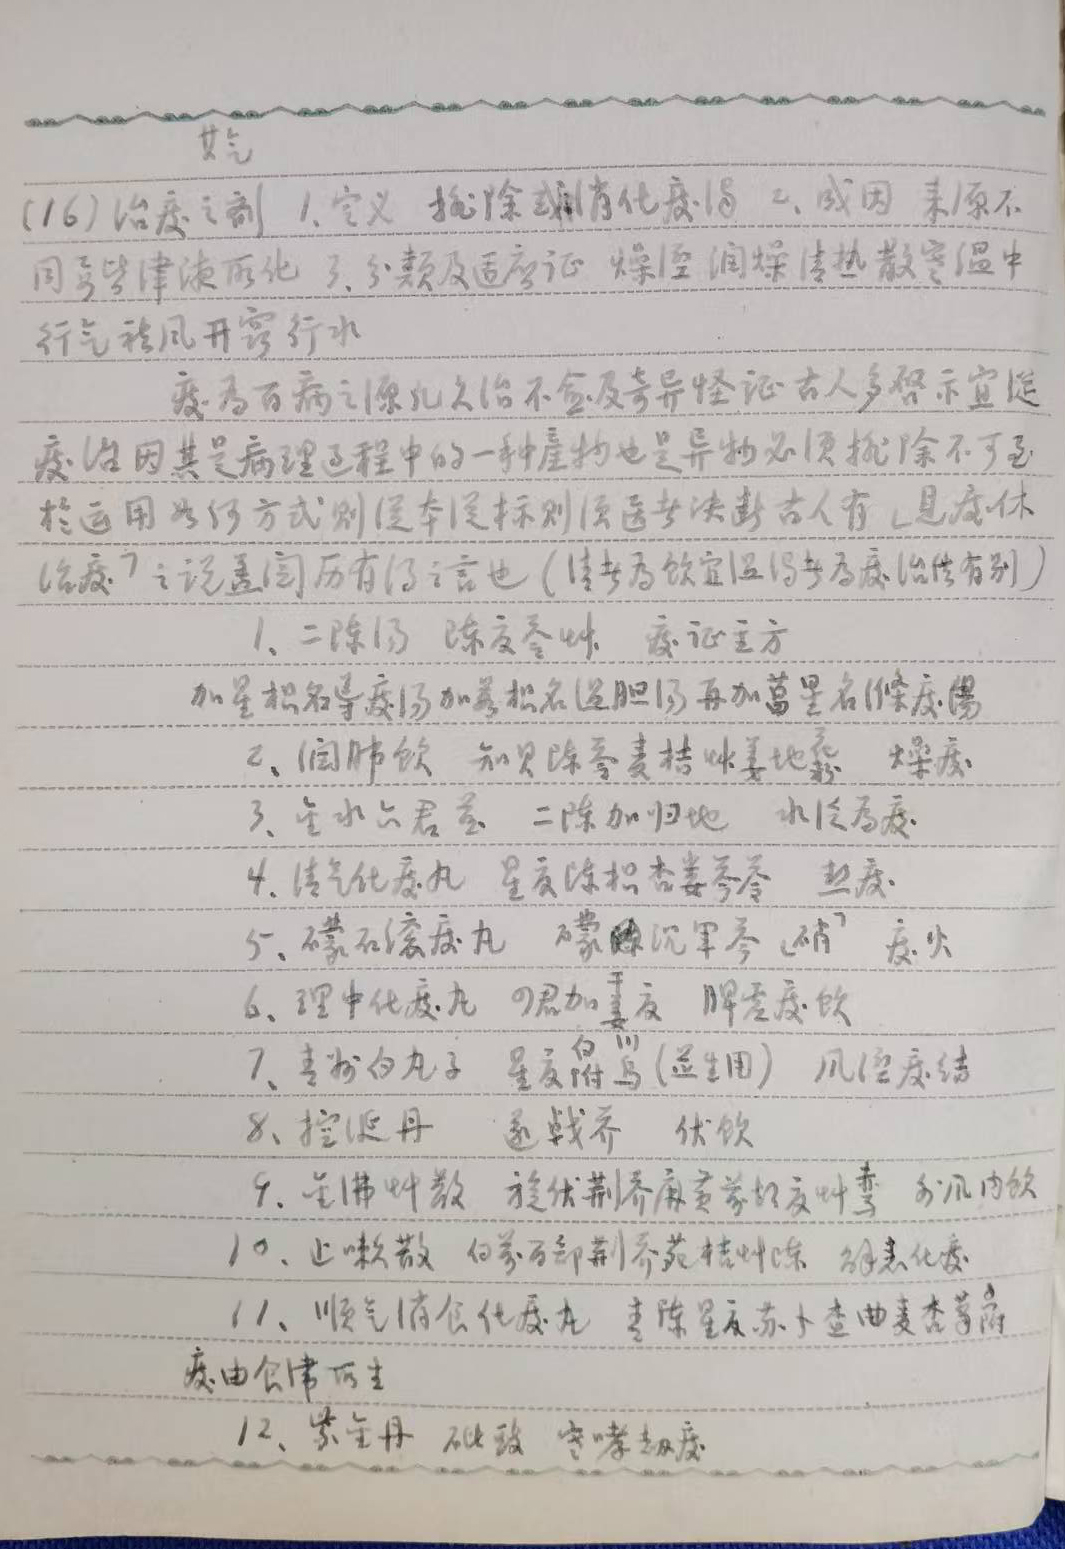 艾气
(16)治痰之剂 1、定义 排除或消化痰浊 2、成因 来原不
同要皆津液所化 3、分类及适应证 燥湿润燥清热散寒温中
行气祛风开窍行水
痰为百病之源凡久治不愈及奇异怪证古人多启示宜从
痰治因其是病理过程中的一种产物也是异物必须排除不可至
於运用如何方式则从本从标则须医者决断古人有「见痰休
治痰」之说盖阅历有得之言也(清者为饮宜温浊者为痰治法有别)
1、二陈汤 陈夏苓草 痰证主方
加星枳名导痰汤加茹枳名温胆汤再加菖星名滌痰湯
2、润肺饮 知贝陈苓麦桔草姜地花粉 燥痰
3、金水六君煎 二陈加归地 水泛为痰
4、清气化痰丸 星夏陈枳杏蒌芩苓 热痰
5、礞石滚痰丸 礞沉军芩「硝」 痰火
6、理中化痰丸 四君加干姜夏 脾虚痰饮
7、青州白丸子 星夏白附川乌(並生用) 风湿痰结
8、控涎丹 遂戟芥 伏饮
9、金沸草散 旋伏荆芥麻黄前胡夏草赤芍 外风内饮
10、止嗽散 白前百部荆芥菀桔草陈 解表化痰
11、顺气消食化痰丸 青陈星夏苏卜查曲麦杏葛附
痰由食滞所生
12、紫金丹 砒豉 寒哮劫痰